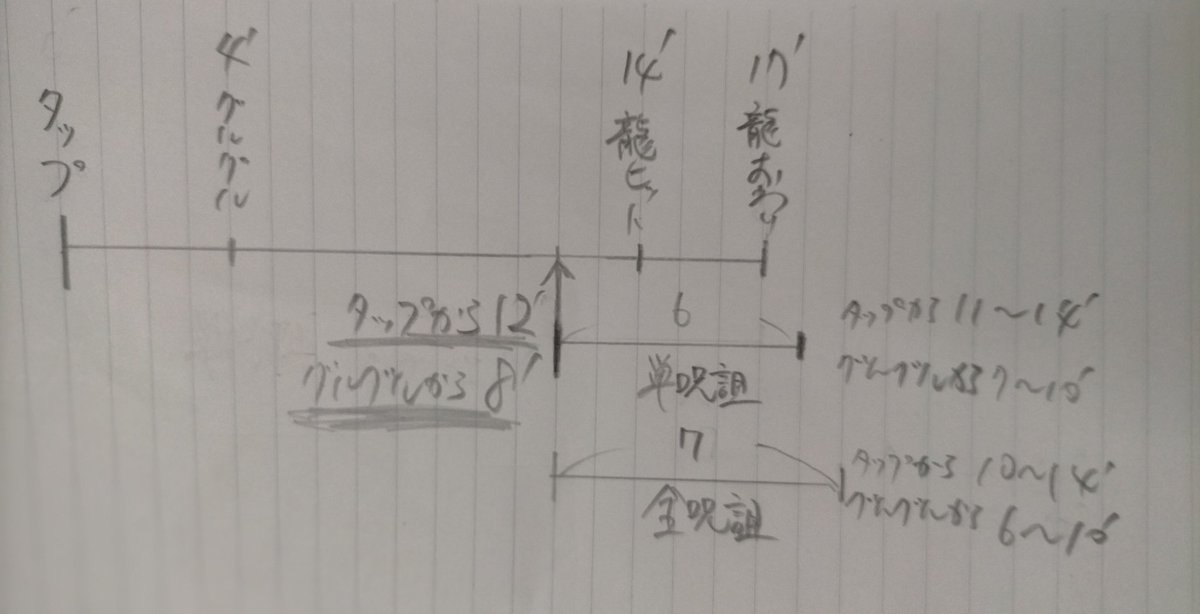 タップ
4' グルグル
14' 龍ヒット
17' 龍おわり
タップから12'
グルグルから8'
6
単呪詛
タップから11〜14'
グルグルから7〜10'
7
全呪詛
タップから10〜14'
グルグルから6〜10'